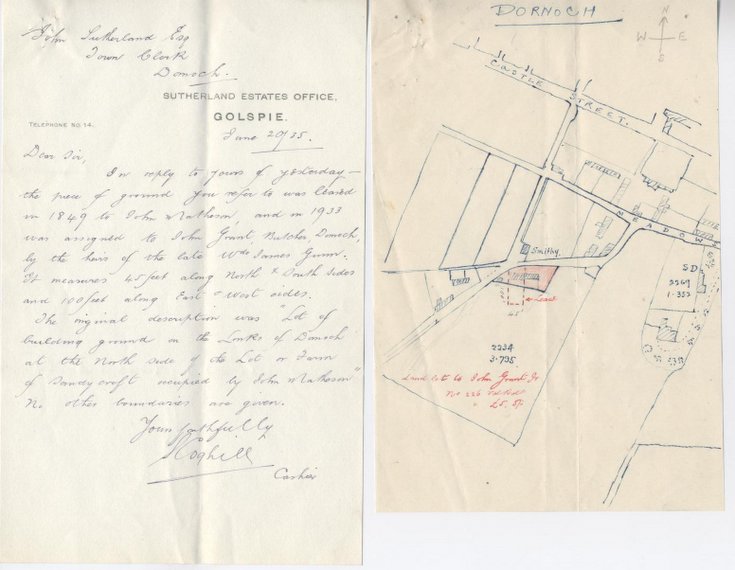 John Sutherland Esq
Town Clerk
Dornoch.
SUTHERLAND ESTATES OFFICE,
GOLSPIE.
TELEPHONE No 14.
June 20/35.
Dear Sir,
In reply to yours of yesterday –
the piece of ground you refer to was leased
in 1849 to John Matheson, and in 1933
was assigned to John Grant Butcher, Dornoch,
by the heirs of the late Wm James Gunn.
It measures 45 feet along North & South Sides
and 100 feet along East & West sides.
The original description was "Lot of
building ground on the Links of Dornoch
at the North side of the Lot or Farm
of Sandycroft occupied by John Matheson"
No other boundaries are given.
Yours faithfully
Coghill
Cashier
DORNOCH
N
W E
S
CASTLE STREET.
MEADOW
Smithy
SD
2269
1·352
Lease
45
2234
3·735
Land let to John Grant Jr
No 226
£5. 5/-